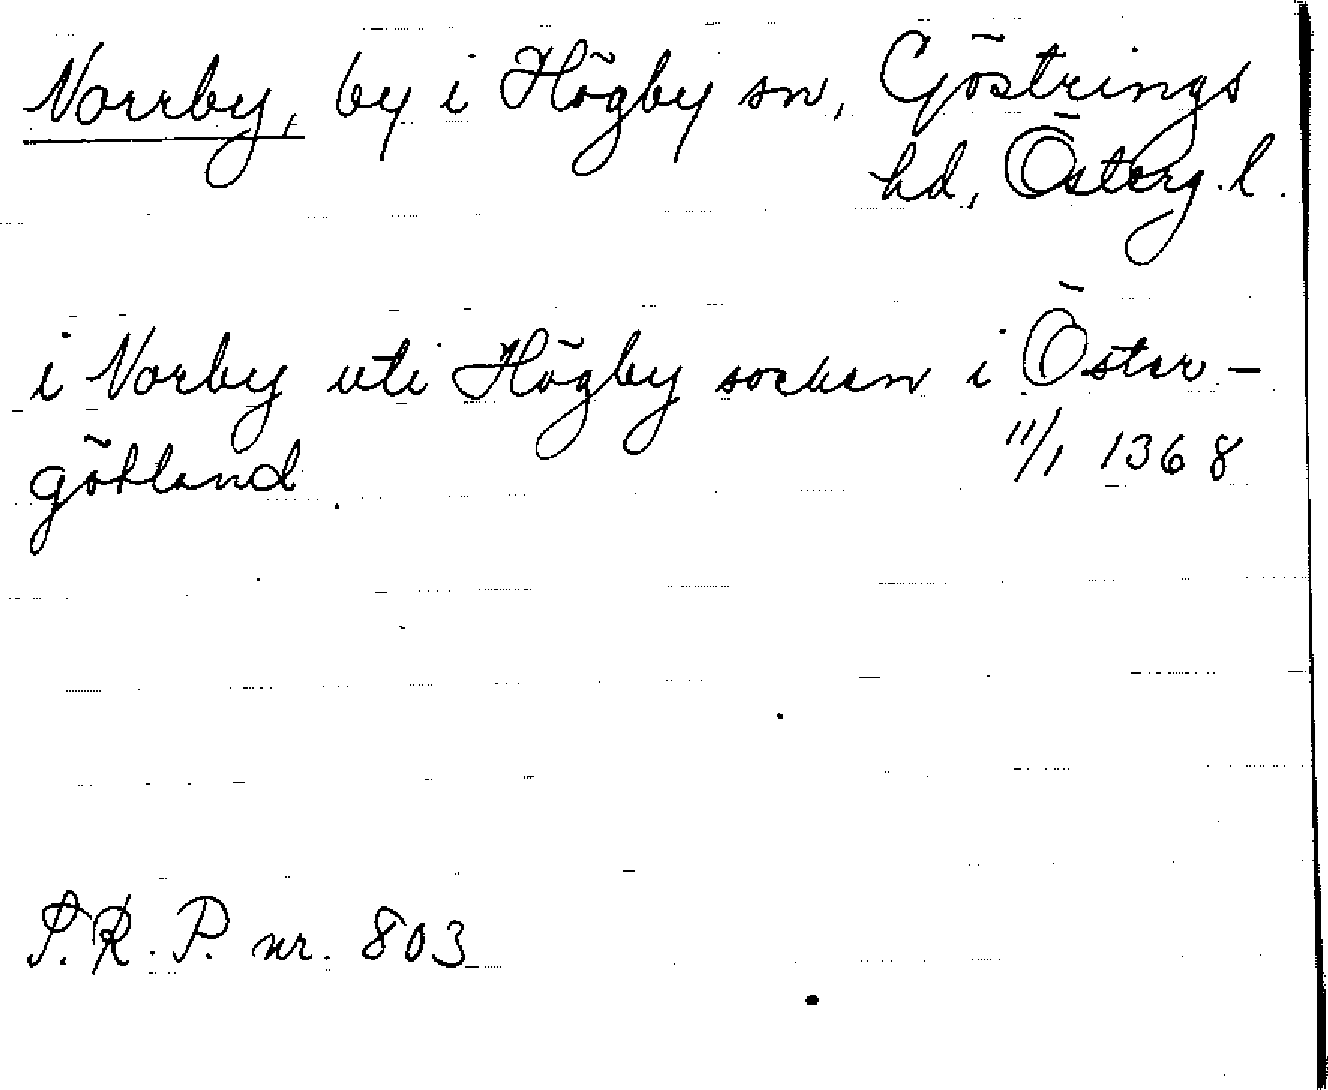 Norrby, by i Högby sn, Göstrings
hd, Österg. l.
i Norby uti Högby socken i Öster-
götland 11/1 1368
S.R.P. nr. 803